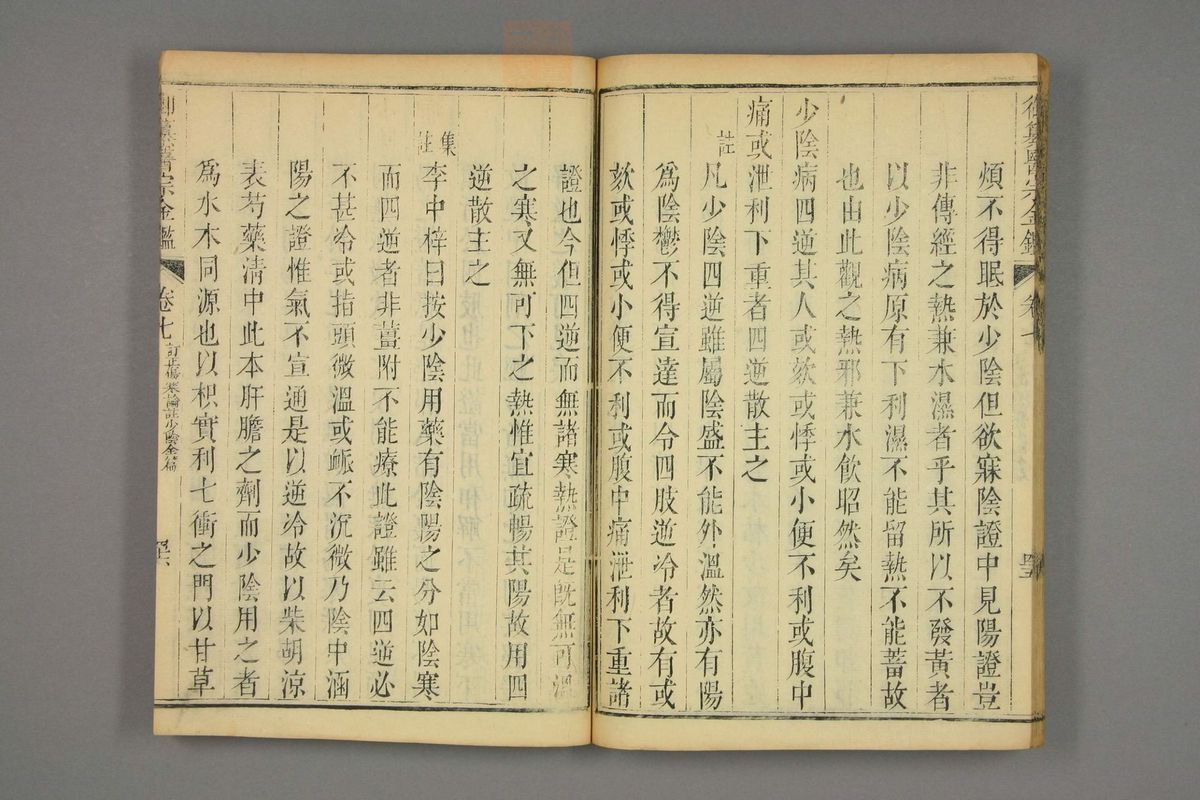 煩不得眠於少陰但欲寐陰證中見陽證豈
非傳經之熱兼水濕者乎其所以不發黃者
以少陰病原有下利濕不能留熱不能蓄故
也由此觀之熱邪兼水飲昭然矣
少陰病四逆其人或欬或悸或小便不利或腹中
痛或泄利下重者四逆散主之
註
凡少陰四逆雖屬陰盛不能外溫然亦有陽
爲陰鬱不得宣達而令四肢逆冷者故有或
欬或悸或小便不利或腹中痛泄利下重諸
證也今但四逆而無諸寒熱證是既無可溫
之寒又無可下之熱惟宜疏暢其陽故用四
逆散主之
集註
李中梓曰按少陰用藥有陰陽之分如陰寒
而四逆者非薑附不能療此證雖云四逆必
不甚冷或指頭微溫或衇不沉微乃陰中涵
陽之證惟氣不宣通是以逆冷故以柴胡涼
表芍藥清中此本肝膽之劑而少陰用之者
爲水木同源也以枳實利七衝之門以甘草
御纂醫宗金鑑 卷七 訂正傷寒論註少陰全篇